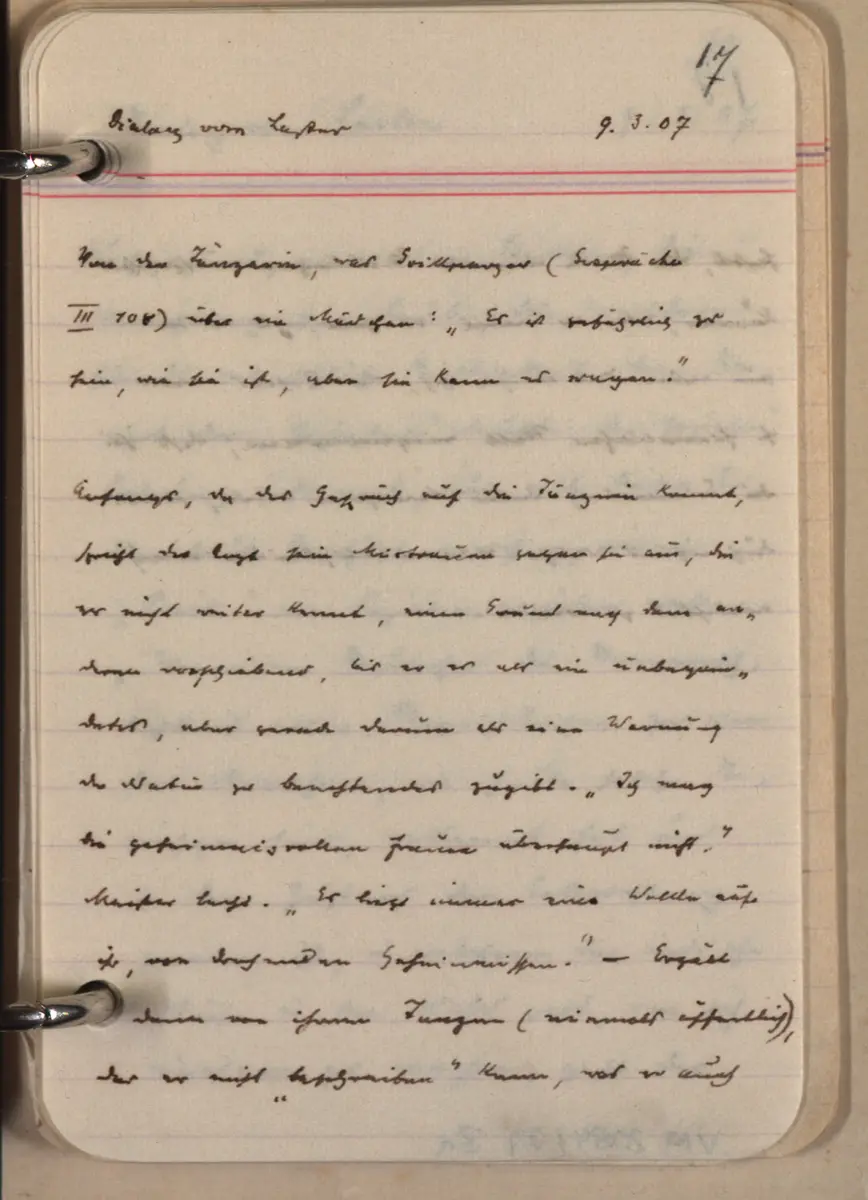 17
Dialog vom Laster 9.3.07
Von der Tänzerin, was Grillparzer (Gespräche
III 108) über ein Mädchen: „Es ist gefährlich zu
sein, wie sie ist, aber sie kann es wagen."
Anfangs, da das Gespräch auf die Tänzerin kommt,
spricht der Arzt sein Mistrauen gegen sie aus, die
er nicht weiter kennt, einen Grund nach dem an„
deren vorschiebend, bis er es als ein unbegrün„
detes, aber gerade darum als eine Warnung
der Natur zu beachtendes zugibt. „Ich mag
die geheimnisvollen Frauen überhaupt nicht."
Meister lacht. „Es liegt immer eine Wolke auf
ihr, von drohenden Geheimnissen." — Erzält
dann von ihrem Tanzen (niemals öffentlich),
das er nicht „beschreiben" kann, was er auch